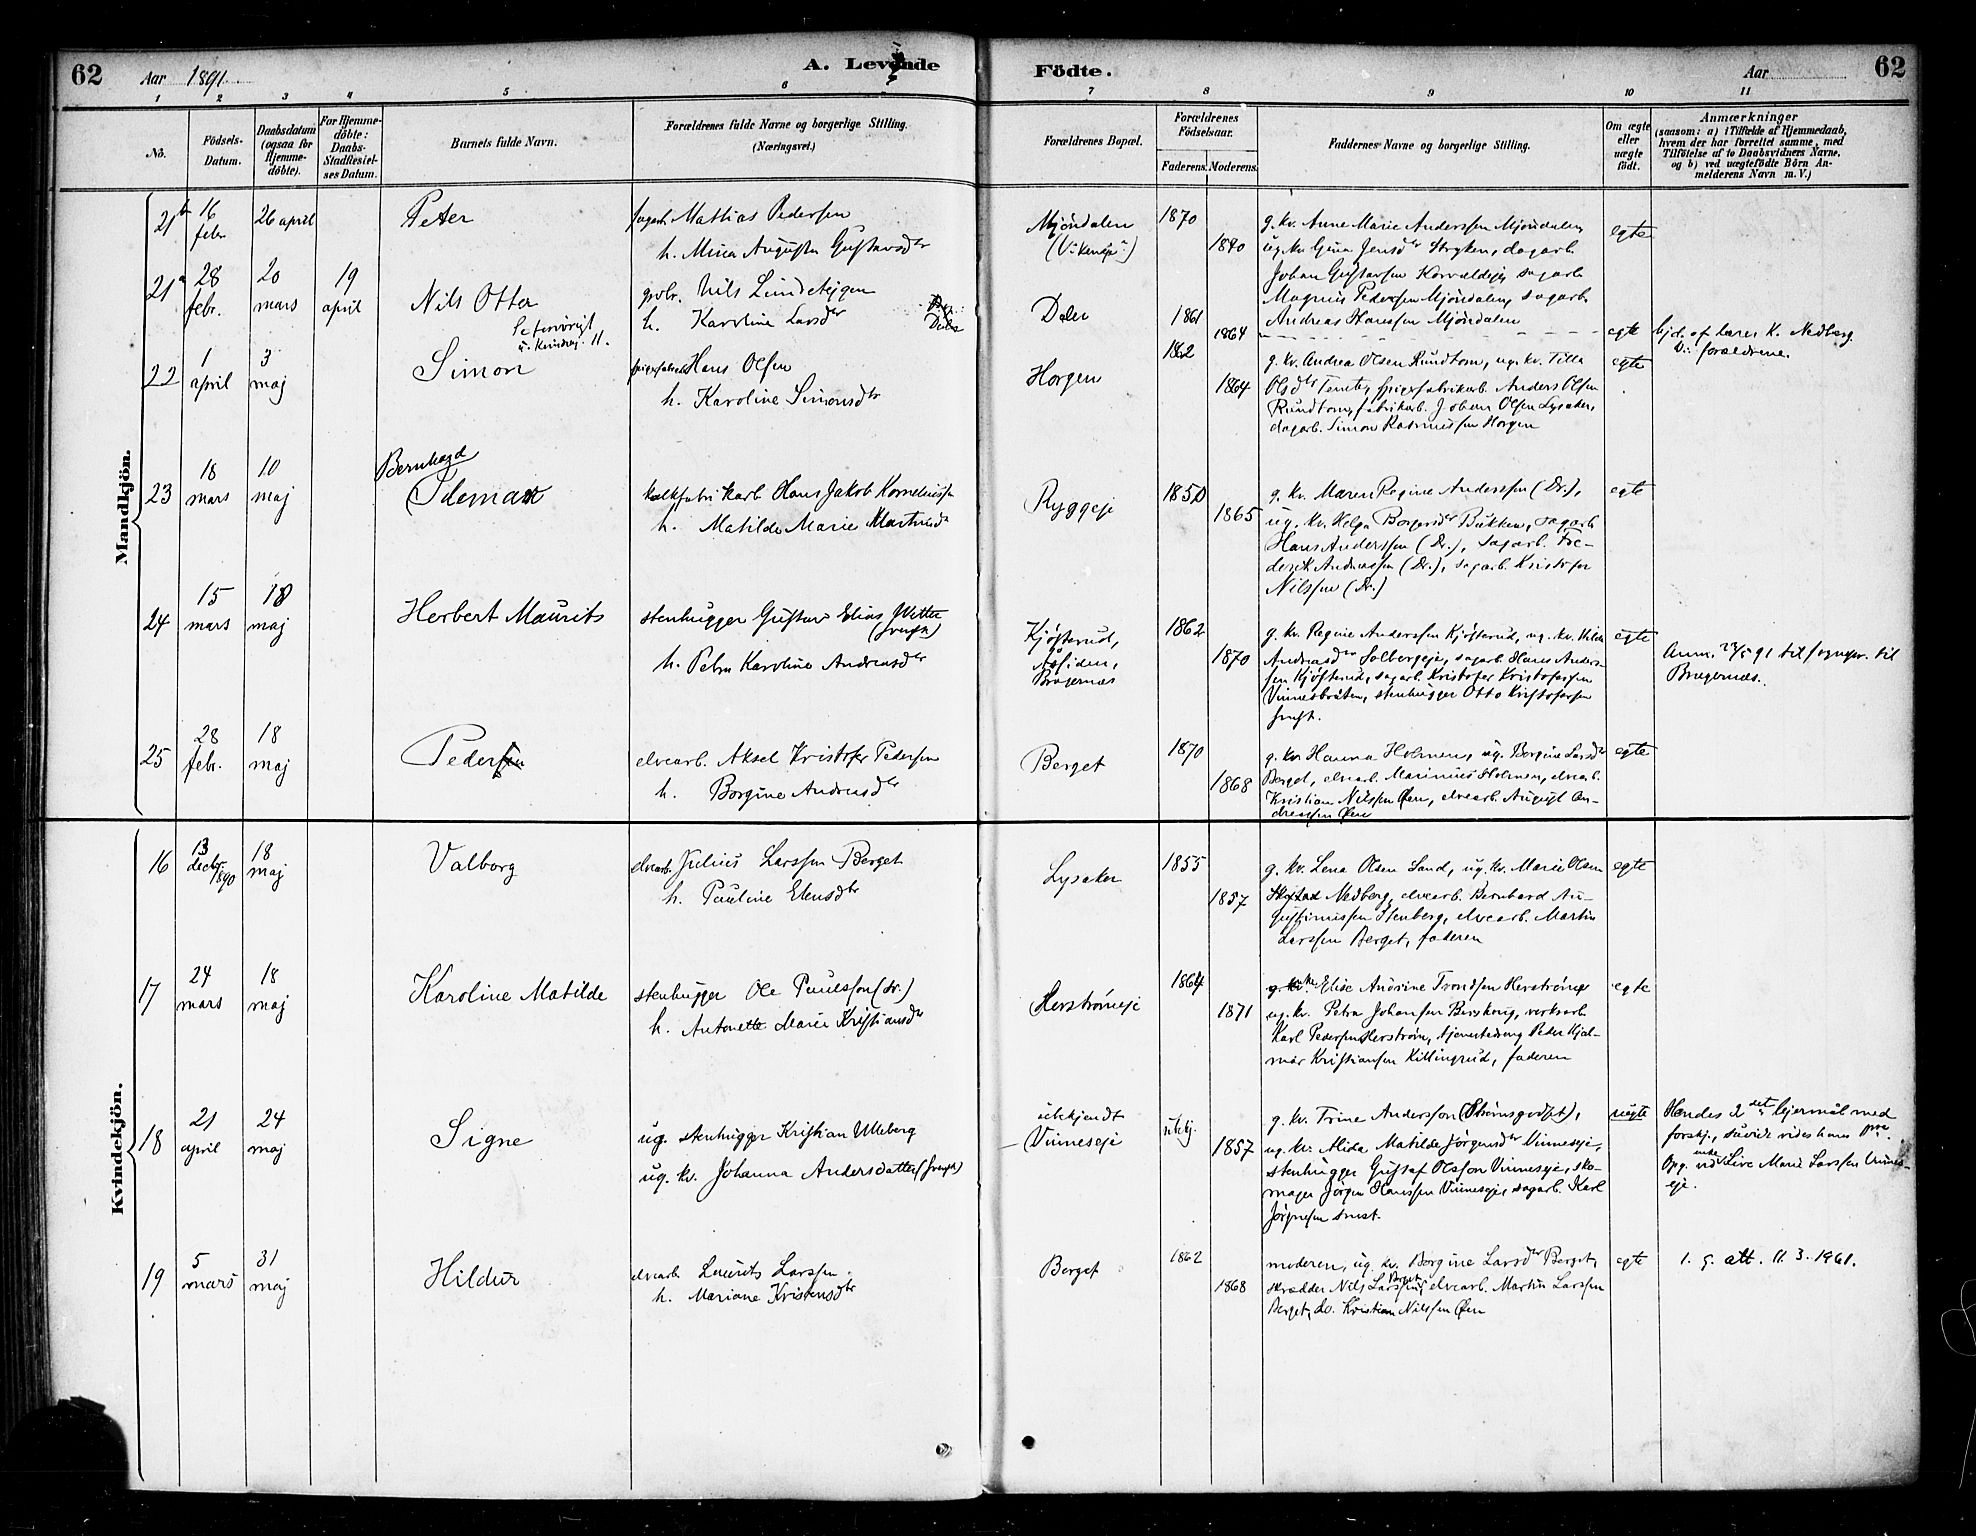 62 Aar 1891. A. Levende Födte. Aar 62
1 2 3 4 5 6 7 8 9 10 11
No.
Födsels-Datum.
Daabsdatum (ogsaa for Hjemme-döbte).
For Hjemme-döbte: Daabs-Stadfæstel-ses Datum.
Barnets fulde Navn.
Forældrenes fulde Navne og borgerlige Stilling.
(Næringsvei.)
Forældrenes Bopæl.
Forældrenes Födselsaar.
Faderens. Moderens.
Faddernes Navne og borgerlige Stilling.
Om ægte eller uægte födt.
Anmærkninger
(saasom: a) i Tilfælde af Hjemmedaab, hvem der har forrettet samme, med Tilföielse af to Daabsvidners Navne, og b) ved uægtefödte Börn An-melderens Navn m. V.)
Mandkjön.
21b 16 febr 26 april Peter
sagarb Mathias Pedersen
h. Mina Augusta Gustavsdtr
Mjöndalen
1870
1870
g. kv. Anne Marie Anderssen Mjöndalen,
ug. kv. Gina Jensdtr Stryken, dagarb.
Johan Gustavsen Korvaldeje, sagarb.
Magnus Pedersen Mjöndalen, sagarb.
Andreas Hanssen Mjöndalen
egte
21a 28 febr. 20 mars 19 april Nils Otter
grbr. Nils
h. Karoline Larsdtr
Dalen
1861
1864
egte
hjd. af lærer K. Nedberg
forældrene.
22 1 april 3 maj Simon
Hans Olsen
h. Karoline Simonsdtr
Horgen
1862
1864
g. kv. Andrea Olsen Rundtom, ug. kv. Tilla
Olsdtr Temte, spigerfabrikarb. Anders Olsen
Rundtom, fabrikarb. Johan Olsen Lysaker,
dagarb. Simon Rasmussen Horgen
egte
23 18 mars 10 maj Bernhard
Ideman
kalkfabrikarb Hans Jakob Korneliussen
h. Matilde Marie Martinsdr
Ryggeje
1850
1865
g. kv. Maren Regine Anderssen (Dr.),
ug. kv. Helga Borgersdtr Bukken, sagarb.
Hans Anderssen (Dr.), sagarb. Fre-
derik Anderssen (Dr.), sagarb. Kristofer
Nilssen (Dr.)
egte
24 15 mars 18 maj Herbert Maurits
stenhugger Gustav Elias Wetter
h. Petra Karoline Andreasdtr
Kjösterud,
Åsiden,
Bragernæs
1862
1870
g. kv. Regine Anderssen Kjösterud, ug. kv. Hilda
Andreasdtr Solbergeje, sagarb. Hans Anders-
sen Kjösterud, sagarb. Kristofer Kristofersen
Vinnesbråten, stenhugger Otto Kristofersen
smst.
egte
Anm. 23/5 91 til sognepr. til
Bragernæs.
25 28 febr. 18 maj Peder
elvearb. Aksel Kristofer Pedersen
h. Borgine Andreasdtr
Berget
1870
1868
g. kv. Hanna Holmen, ug. Borgine Larsdtr
Berget, elvearb. Marinius Holmen, elvearb.
Kristian Nilssen Øen, elvearb. August An-
dressen Øen
egte
Kvindekjön.
16 13 decbr. 1890 18 maj Valborg
elvearb Julius Larssen Berget
h. Pauline Elensdtr
Lysaker
1855
1857
g. kv. Lena Olsen Sand, ug. kv. Marie Olsen
Nedberg, elvearb. Bernhard Au-
gustinussen Stenberg, elvearb. Martin
Larssen Berget, faderen
egte
17 24 mars 18 maj Karoline Matilde
stenhugger Ole Paulsson (sv.)
h. Antonette Marie Kristiansdtr
Herströmeje
1864
1871
Elise Andrine Trondsen Herström,
ug. kv. Petra Johansen Birskoug, verksarb.
Karl Pedersen Herström, tjenestedreng Peder Hjal-
mar Kristiansen Killingrud, faderen
egte
18 21 april 24 maj Signe
ug. stenhugger Kristian Ulleberg
ug. kv. Johanna Andersdatter
ubekjendt
Vinneseje
ubekj.
1857
g. kv. Trine Andersson (Strömsgodset),
ug. kv. Alida Matilde Jörgensdtr Vinneseje,
stenhugger Gustaf Olsson Vinneseje, sko-
mager Jörgen Hanssen Vinneseje, sagarb. Karl
Jörgensen smst.
uegte
Hendes 2det lejermål med
forskj., såvidt vides hans
Opg. ved Live Marie Larssen Vinnes-
eje.
19 5 mars 31 maj Hildur
elvearb Laurits Larssen.
h. Mariane Kristensdtr
Berget
1862
1868
moderen, ug. kv. Borgine Larsdtr Berget,
skrædder Nils Larssen Berget, elvearb. Martin Larssen
Berget, do. Kristian Nilssen Øen
egte
1. g. att. 11.3.1961.